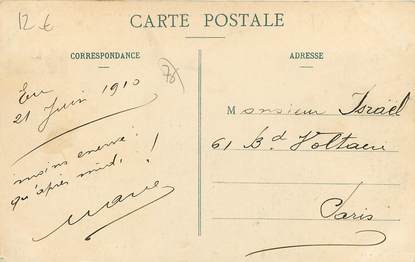 12 €
CARTE POSTALE
CORRESPONDANCE
ADRESSE
76
Eu
21 Juin 1910
moins enervé
qu'après midi, !
Marie
Monsieur Israël
61 Bd Voltaire
Paris